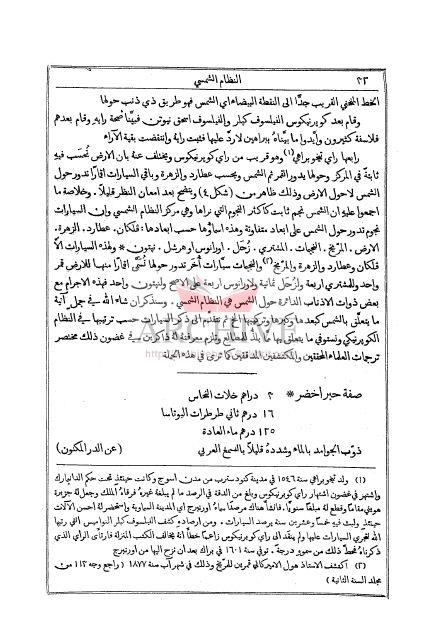 ٢٢ النظام الشمسي
الخط المنحني القريب جدًّا الى النقطة البيضاء اي الشمس فهو طريق ذي ذنب حولها
وقام بعد كوبرنيكوس الفيلسوف كبلر والفيلسوف اسحق نيوتن فبيَّنا صحة رايه وقام بعدهم
فلاسفة كثيرون وايَّدوا ما بيَّناه ببراهين لا ردّ عليها فثبت رايه وانتقضت بقية الآراء
رابعها راي تيخو براهي(١) وهو قريب من راي كوبرنيكوس ويختلف عنه بان الارض تُحسَب فيه
ثابتة في المركز وحولها يدور القمر ثم الشمس ويحسب عطارد والزهرة وباقي السيارات اقمارًا تدور حول
الشمس لا حول الارض وذلك ظاهر من (شكل ٤) ويتضح بعد امعان النظر قليلًا. وخلاصة ما
اجمعوا عليه ان الشمس نجم ثابت كاكثر النجوم التي نراها وهي مركز النظام الشمسي وان السيارات
نجوم تدور حول الشمس على ابعاد متفاوتة وهذه اسماؤها حسب ابعادها: فلكان. عطارد. الزهرة.
الارض. المريخ. النجيمات. المشتري. زُحَل. اورانوس او هرشل. نبتون * ولهذه السيارات الا
فلكان وعطارد والزهرة والمريخ(٢) والنجيمات سيّارات أُخر تدور حولها تُسمَّى اقمارًا منها للارض قمر
واحد وللمشتري اربعة ولزُحَل ثمانية ولاورانوس اربعة على الاصح ولنبتون واحد فهذه الاجرام مع
بعض ذوات الاذناب الدائرة حول الشمس هي النظام الشمسي. وسنذكر ان شاء الله في جمل آتية
ما يتعلق بالشمس كبعدها وكبرها وتركيبها الخ ثم نتقدم الى ذكر السيارات حسب ترتيبها في النظم
الكوبرنيكي ونستوفي ما يتعلق بها مما يلذ للمطالع وتلزم معرفته له ذاكرين في غضون ذلك مختصر
ترجمات العلماء المحققين والمكتشفين المدققين كما ترى في هذه الجملة
صفة حبر اخضر * ٢ دراهم خلات النحاس
١٦ درهم ثاني طرطرات البوتاسا
١٢٥ درهم ماء العادة
ذوّب الجوامد بالماء وشدده قليلًا بالصمغ العربي (عن الدر المكنون)
(١) ولد تيخو براهي سنة ١٥٤٦ في مدينة كنودستريب من مدن اسوج وكانت حينئذٍ تحت حكم الدانيمارك
واشتهر في غضون اشتهار راي كوبرنيكوس وبلغ من الدقة في الرصد ما لم يبلغه غيره فرقاه الملك وجعل له جزيرة
هوينْ مقامًا وقطع له مبلغًا سنويًّا. فانشأ هناك مرصدًا سماه اورنبرج اي المدينة السماوية واستحضر له احسن الآلات
حينئذٍ ولبث فيه خمسًا وعشرين سنة يرصد السيارات. ومن ارصاده كشف الفيلسوف كبلر النواميس التي رتبها
الله لتجري السيارات عليها ولم ينقد الى راي كوبرنيكوس زاعمًا خطأً انه يخالف الكتب المنزلة فارتأى الراي الذي
ذكرناه فحطَّ ذلك من سمو درجة. توفي سنة ١٦٠١ في براك بعد ان نزح اليها من اورنبرج
(٢) اكتشف الاستاذ هول الاميركاني قمرين للمريخ وذلك في شهر آب سنة ١٨٧٧ (راجع وجه ١١٢ من
مجلد السنة الثانية)
ARCHIVE